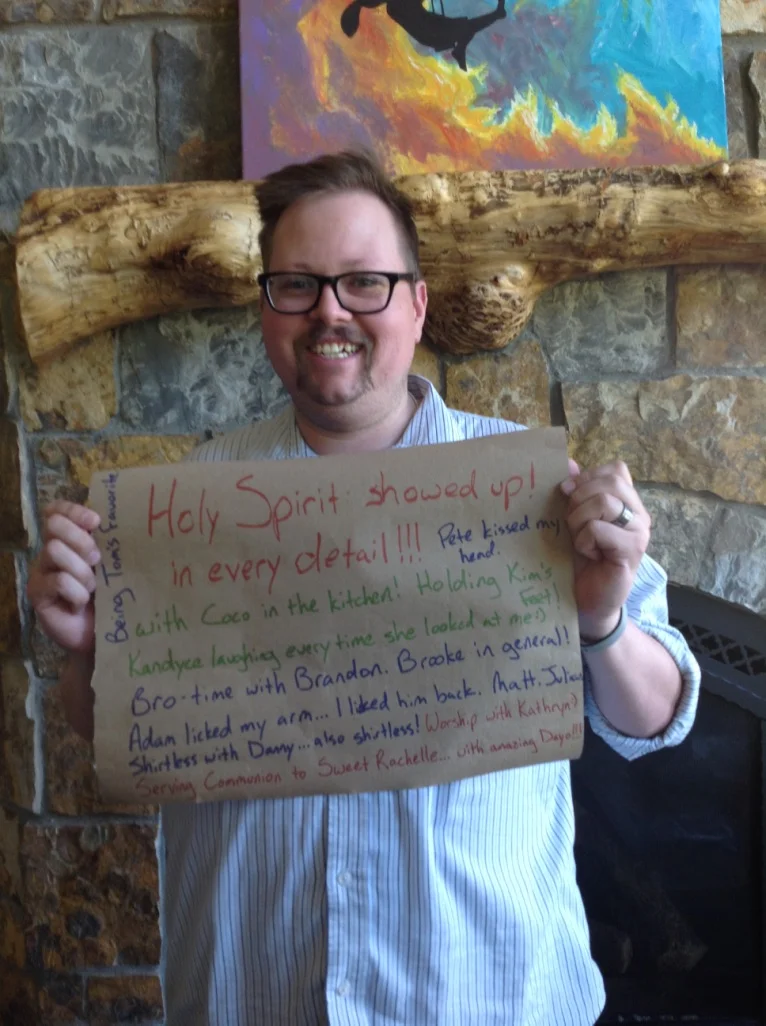 Being Tom's Favorite
Holy Spirit showed up!
in every detail!!! Pete kissed my head.
with Coco in the kitchen! Holding Kim's Feet!
Kandyce laughing every time she looked at me:)
Bro-time with Brandon. Brooke in general!
Adam licked my arm... I licked him back. Matt. Julie
Shirtless with Danny...also shirtless! Worship with Kathryn:)
Serving Communion to Sweet Rachelle... with amazing Dayo!!!